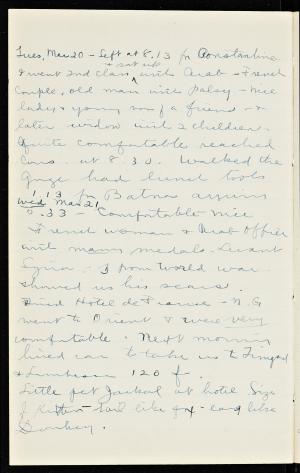 Tues, Mar 20 - Left at 8.13 for Constantine
+ sat up
& went 2nd class with Arab & French
couple, old man with palsy - nice
lady & young son of a friend - &
later widow with 2 children.
Quite comfortable reached
Cons. at 8 30. Walked the
Gorge had lunch took
1.13 for Batna arriving
Wed Mar 21
5.33 - Comfortable nice
French woman & Arab Officer
with many medals. Levant
Syria - 3 from World war -
showed us his scars.
Tried Hotel de France - N.G
went to Orient & were very
comfortable. Next morning
hired car to take us to Timgad
& Lambese 120 f.
Little pet Jackal at hotel. Size
of Kitten - tail like fox - ears like
Donkey.